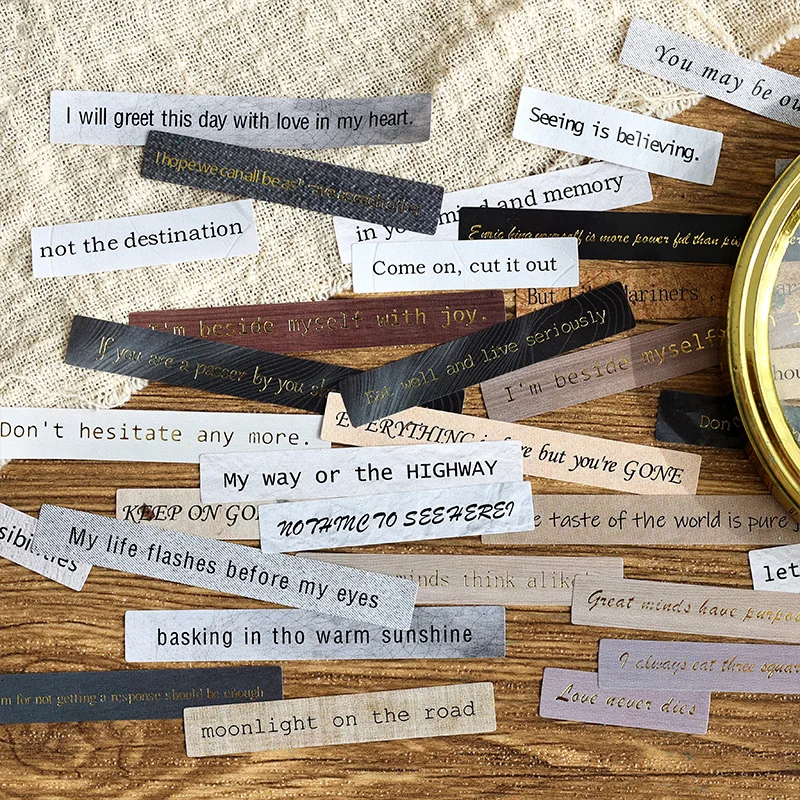 You may be ou
I will greet this day with love in my heart.
Seeing is believing.
I hope we can all be as
in your mind and memory
not the destination
is more power ful than
Come on, cut it out
But Mariners
I'm beside myself with joy.
If you are a passer by you
Eat well and live seriously
I'm beside myself
Don'
hou
Don't hesitate any more.
EVERYTHING is here but you're GONE
My way or the HIGHWAY
KEEP ON GO
NOTHINC TO SEE HEREI
e taste of the world is pure
sibilities
My life flashes before my eyes
minds think alike
let
Great minds have purpo
basking in tho warm sunshine
I always eat three squar
m for not getting a response should be enough
Love never dies
moonlight on the road